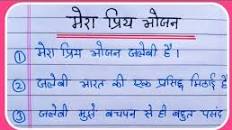 मेरा प्रिय भोजन
① मेरा प्रिय भोजन जलेबी है।
② जलेबी भारत की एक प्रसिद्ध मिठाई है
③ जलेबी मुझे बचपन से ही बहुत पसंद